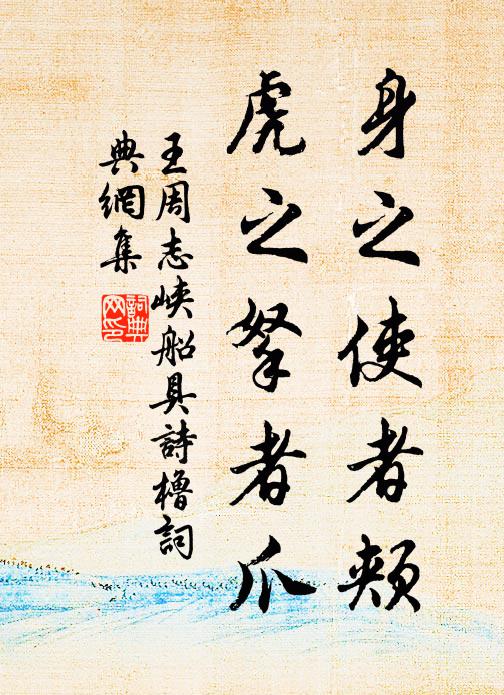 身之使者頰
虎之拏者爪
王周志峽船具詩櫓詞
典網集
詞典
网印